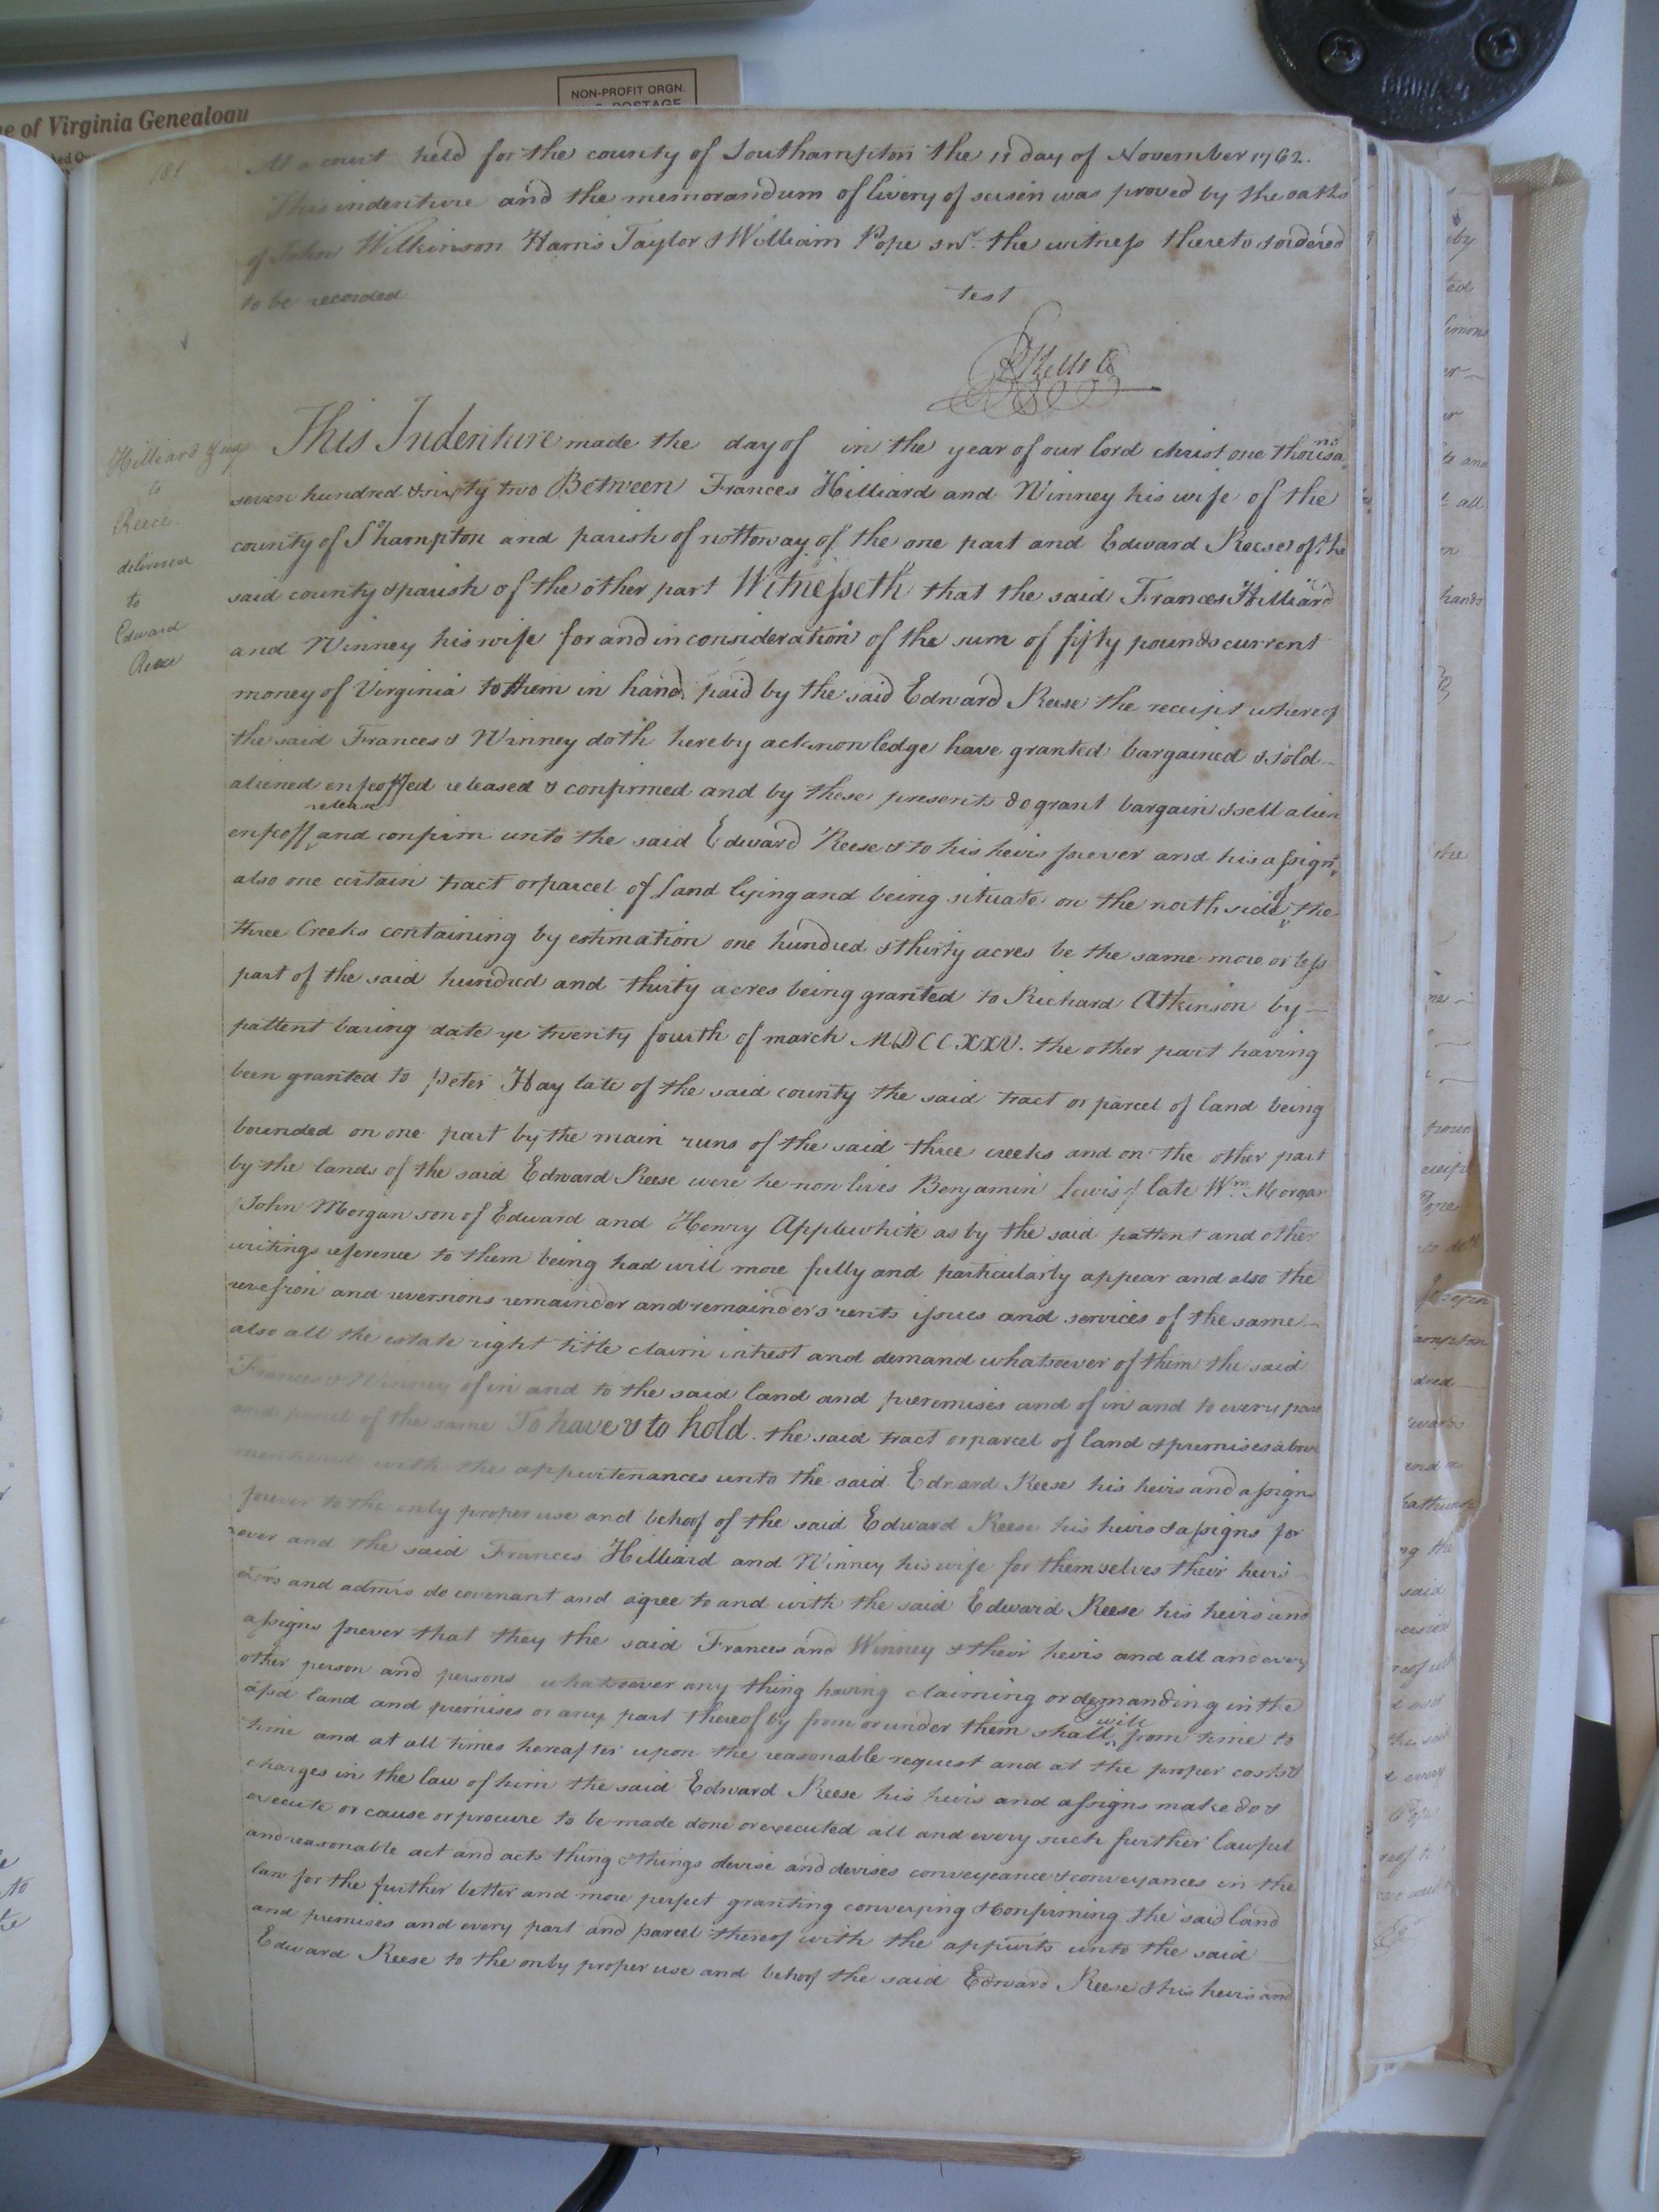 NON-PROFIT ORGN.
POSTAGE
of Virginia Genealogy
181
At a court held for the county of Southampton the 11 day of November 1762.
This indenture and the memorandum of livery of seisin was proved by the oaths
of John Wilkinson Harris Taylor & William Pope snr. the witness thereto & ordered
to be recorded
test
Hilliard & ux
to
Reece.
delivered
to
Edward
Reece
This Indenture made the day of in the year of our lord christ one thousand
seven hundred & sixty two Between Frances Hilliard and Winney his wife of the
county of S'hampton and parish of nottoway of the one part and Edward Reese of the
said county & parish of the other part Witnesseth that the said Frances Hilliard
and Winney his wife for and in consideration of the sum of fifty pounds current
money of Virginia to them in hand paid by the said Edward Reese the receipt whereof
the said Frances & Winney doth hereby acknowledge have granted bargained & sold
aliened enfeoffed released & confirmed and by these presents do grant bargain & sell alien
enfeoff release and confirm unto the said Edward Reese & to his heirs forever and his assigns
also one certain tract or parcel of Land lying and being situate on the north side of the
three Creeks containing by estimation one hundred & thirty acres be the same more or less
part of the said hundred and thirty acres being granted to Richard Atkinson by
pattent baring date ye twenty fourth of march MDCCXXV. the other part having
been granted to Peter Hay late of the said county the said tract or parcel of land being
bounded on one part by the main runs of the said three creeks and on the other part
by the lands of the said Edward Reese were he now lives Benjamin Lewis late Wm. Morgan
John Morgan son of Edward and Henry Applewhite as by the said pattent and other
writings reference to them being had will more fully and particularly appear and also the
reversion and reversions remainder and remainders rents issues and services of the same
also all the estate right title claim intrest and demand whatsoever of them the said
Frances & Winney of in and to the said land and premises and of in and to every part
and parcel of the same To have & to hold the said tract or parcel of land & premises above
mentioned with the appurtenances unto the said Edward Reese his heirs and assigns
forever to the only proper use and behoof of the said Edward Reese his heirs & assigns for
ever and the said Frances Hilliard and Winney his wife for themselves their heirs
exors and admrs do covenant and agree to and with the said Edward Reese his heirs and
assigns forever that they the said Frances and Winney & their heirs and all and every
other person and persons whatsoever any thing having claiming or demanding in the
afsd land and premises or any part thereof by from or under them shall & will from time to
time and at all times hereafter upon the reasonable request and at the proper costs &
charges in the law of him the said Edward Reese his heirs and assigns make do &
execute or cause or procure to be made done or executed all and every such further lawful
and reasonable act and acts thing & things devise and devises conveyeance & conveyances in the
law for the further better and more perfect granting conveying & confirming the said land
and premises and every part and parcel thereof with the appurts unto the said
Edward Reese to the only proper use and behoof the said Edward Reese & his heirs and